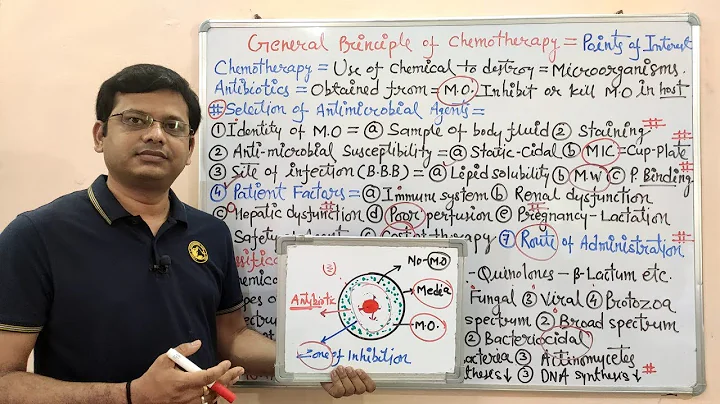 General Principle of Chemotherapy = Points of Interest
Chemotherapy = Use of Chemical to destroy = Microorganisms.
Antibiotics = Obtained from = M.O. Inhibit or kill M.O in host
# Selection of Antimicrobial Agents =
① Identity of M.O = ⓐ Sample of body fluid ② Staining #
② Anti-microbial Susceptibility = ⓐ Static-Cidal ⓑ MIC = Cup-Plate #
③ Site of infection (B.B.B) = ⓐ Lipid solubility ⓑ MW ⓒ P. Binding #
④ Patient Factors = ⓐ Immune system ⓑ Renal dysfunction
ⓒ Hepatic dysfunction ⓓ Poor perfusion ⓔ Pregnancy - Lactation
Safety Agent ⑥ Cost of therapy ⑦ Route of Administration. #
- Quinolones - β-Lactum etc.
Fungal ③ Viral ④ Protozoa
spectrum ② Broad spectrum
② Bacteriocidal
③ Actinomycetes
③ DNA synthesis ↓ #
No-M.O
Media
Antibiotic
M.O.
Zone of Inhibition